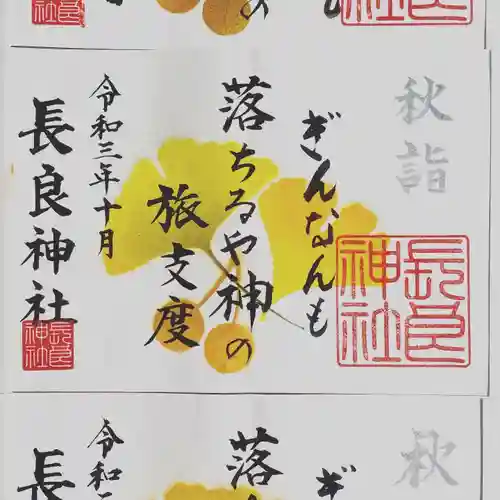 秋詣
ぎんなんも
落ちるや神の
旅支度
令和三年十月
長良神社
長良神社
長良神社
秋
ぎ
落
令和
長